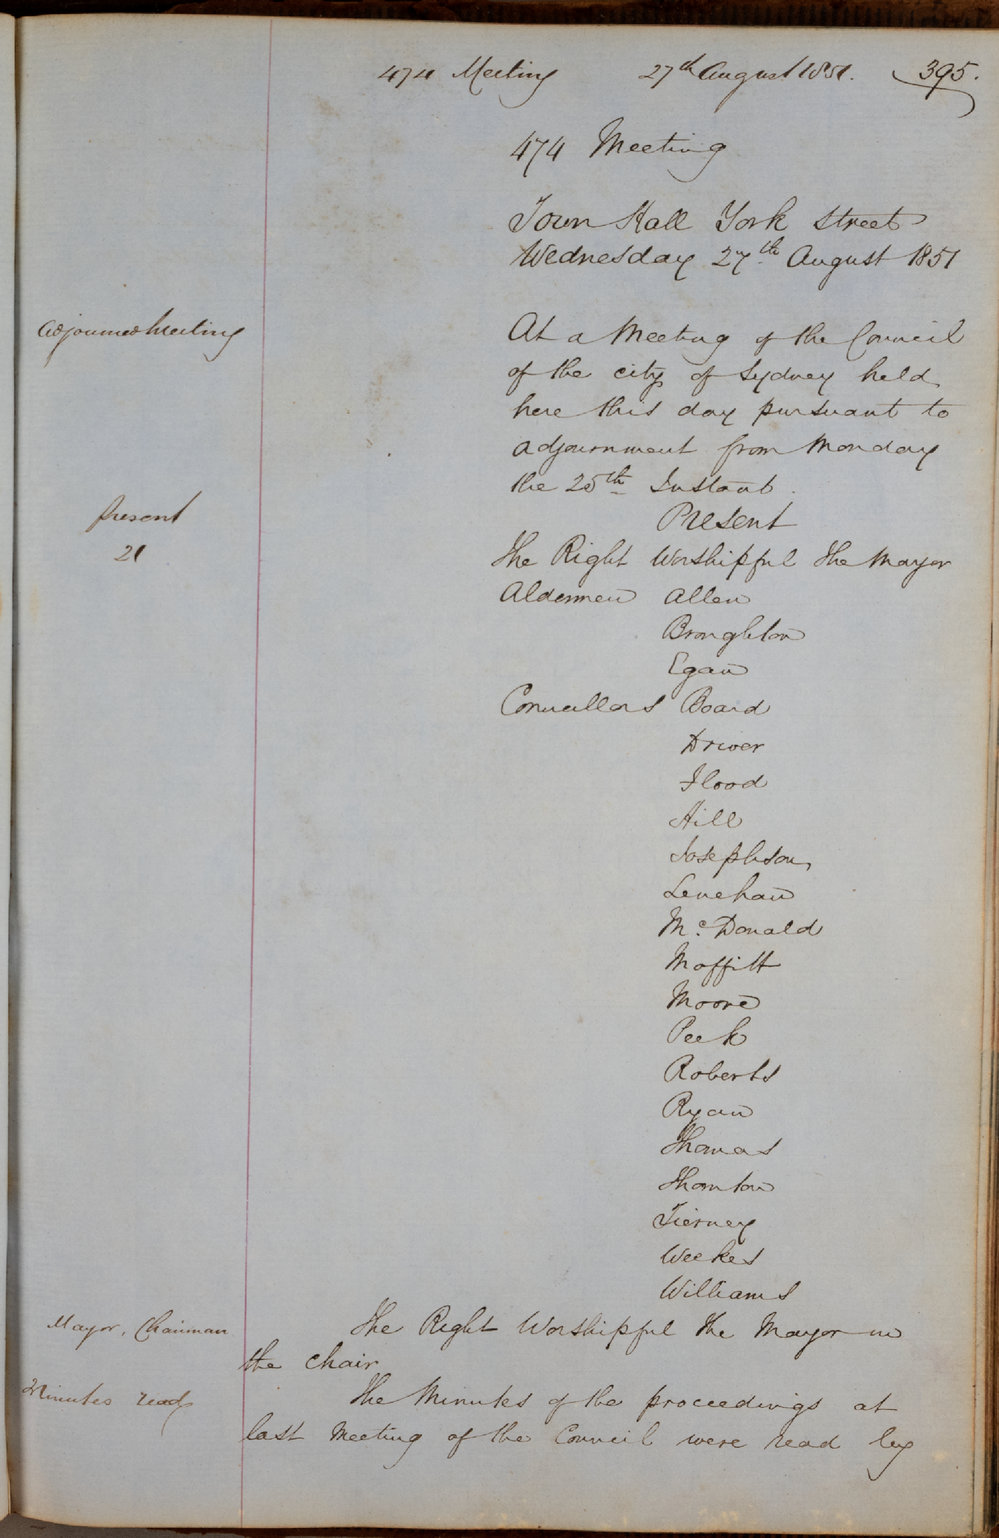 474 Meeting 27th August 1851. 395.
474 Meeting
Town Hall York Street
Wednesday 27th August 1851
Adjourned Meeting
At a Meeting of the Council
of the city of Sydney held
here this day pursuant to
adjournment from Monday
the 25th Instant.
Present
21
Present
The Right Worshipful The Mayor
Aldermen Allen
Broughton
Egan
Councillors Board
Driver
Flood
Hill
Josephson
Lenehan
Mc. Donald
Moffitt
Moore
Peek
Roberts
Ryan
Thomas
Thornton
Tierney
Weekes
Williams
Mayor, Chairman
The Right Worshipful The Mayor in
the chair
Minutes read
The Minutes of the proceedings at
last Meeting of the Council were read by